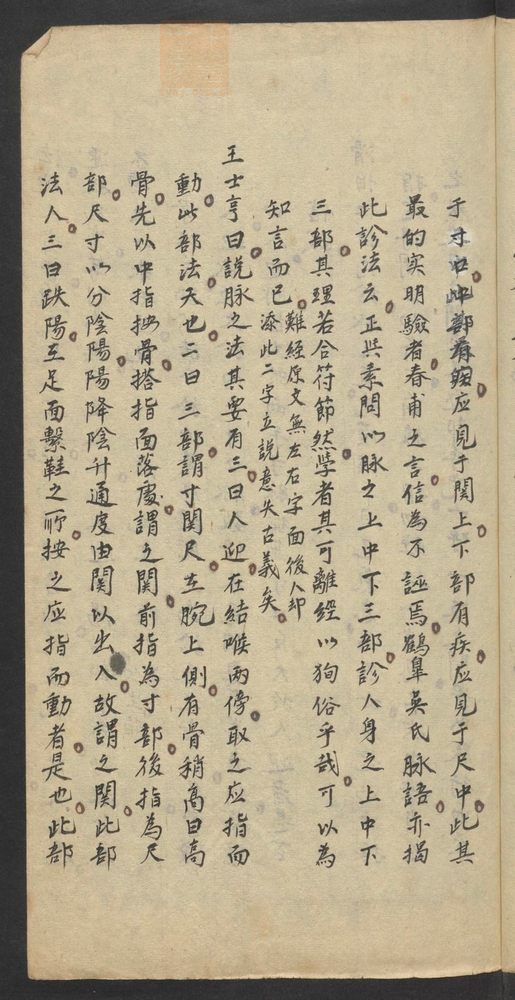 于寸口中部有病应見于関上下部有疾应見于尺中此其
最的实明驗者春甫之言信為不誣焉鶴皐吳氏脉語亦揭
此診法云正與素問以脉之上中下三部診人身之上中下
三部其理若合符節然學者其可離經以狥俗乎哉可以為
知言而已難經原文無左右字面後人却
添此二字立說意失古義矣
王士亨曰說脉之法其要有三曰人迎在結喉兩傍取之应指而
動此部法天也二曰三部謂寸関尺在腕上側有骨稍高曰高
骨先以中指按骨搭指面落處謂之関前指為寸部後指為尺
部尺寸以分陰陽陽降陰升通度由関以出入故謂之関此部
法人三曰趺陽在足面繫鞋之所按之应指而動者是也此部